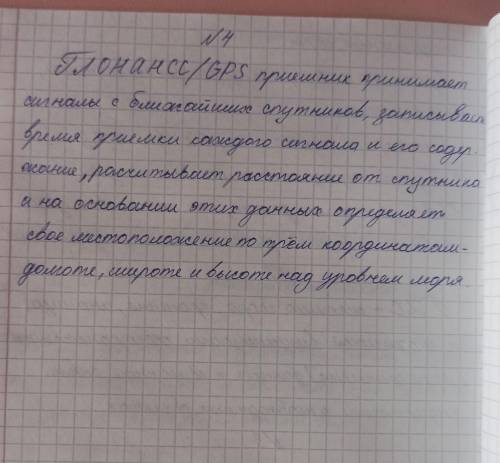 №4
ГЛОНАНСС/GPS приемник принимает
сигналы с ближайших спутников, записывает
время приемки каждого сигнала и его содер-
жание, расчитывает расстояние от спутника
и на основании этих данных определяет
свое местоположение по трём координатам-
долготе, широте и высоте над уровнем моря.